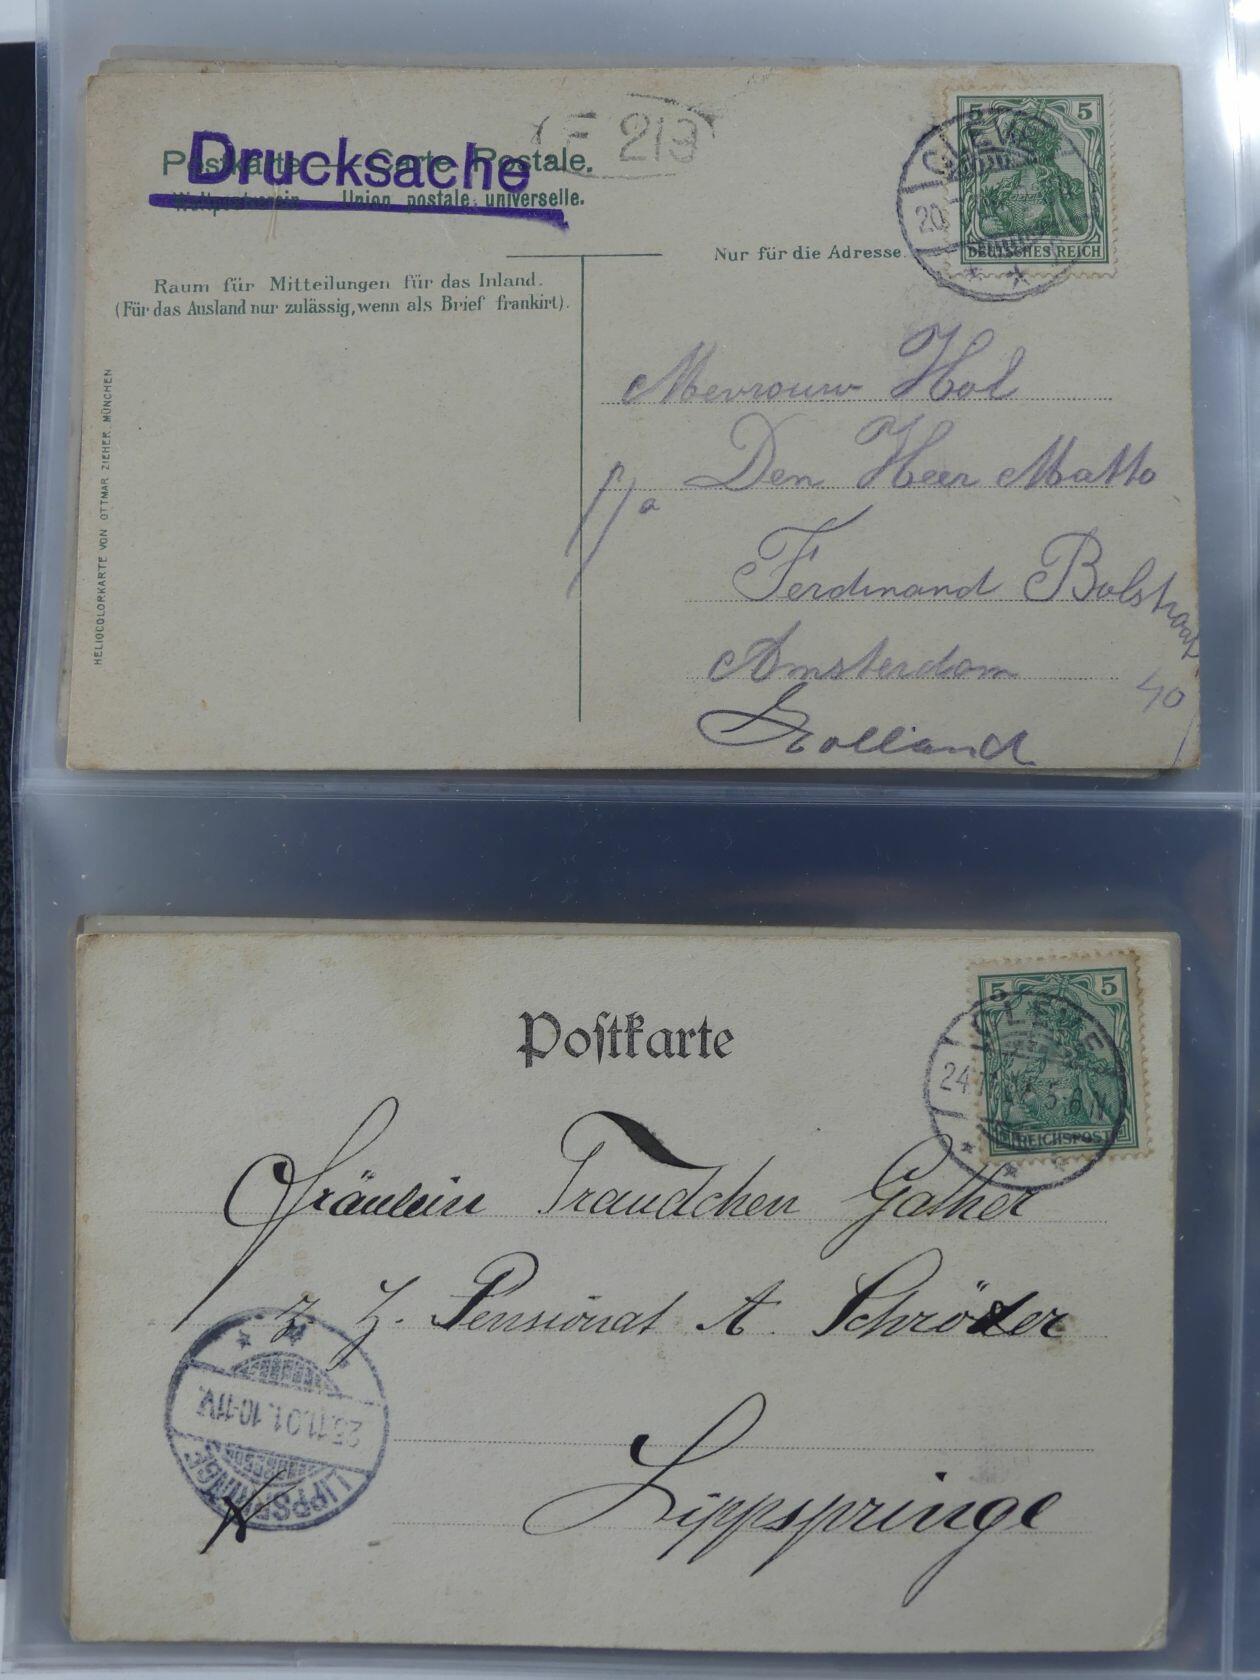 F 219
Postkarte — Carte Postale.
Drucksache
Weltpostverein Union postale universelle.
CLEVE
20
5 5
DEUTSCHES REICH
Nur für die Adresse.
Raum für Mitteilungen für das Inland.
(Für das Ausland nur zulässig, wenn als Brief frankirt).
HELIOCOLORKARTE VON OTTMAR ZIEHER, MÜNCHEN
Mevrouw Hol
p/a Den Heer Matto
Ferdinand Bolstraat
40
Amsterdam
Holland
Postkarte
5 5
REICHSPOST
CLEVE
24 5-6 N
Fräulein Traudchen Gather
z. Z. Pensionat A. Schröder
Lippspringe
25.11.01. 10-11V.
LIPPSPRINGE